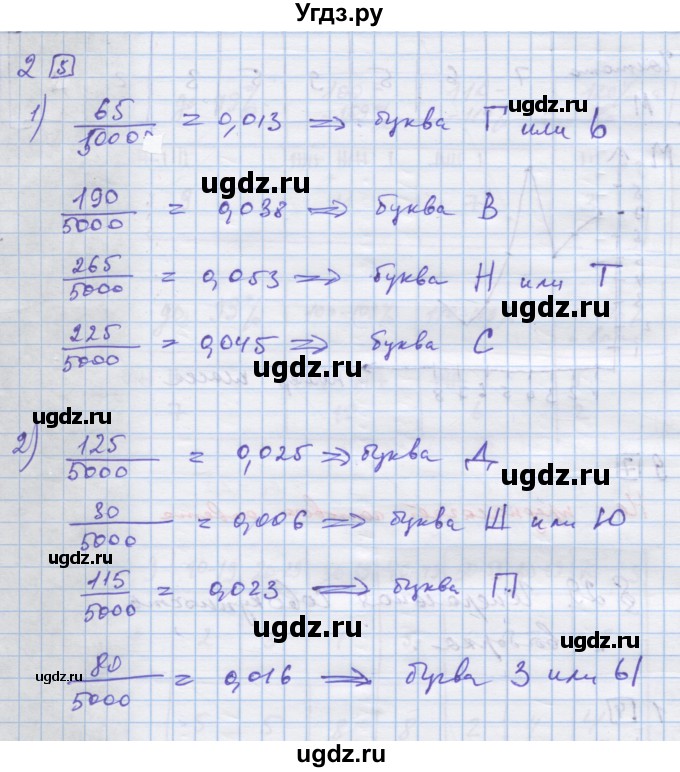 Угдз.ру
2 5
1) 65/5000 = 0,013 => буква Г или ь
ugdz.ru
190/5000 = 0,038 => буква В
265/5000 = 0,053 => буква Н или Т
ugdz.ru ugdz.ru
225/5000 = 0,045 => буква С
ugdz.ru
ugdz.ru
2) 125/5000 = 0,025 => буква Д
ugdz.ru
30/5000 = 0,006 => буква Ш или Ю
ugdz.ru
115/5000 = 0,023 => буква П
ugdz.ru
80/5000 = 0,016 => буква З или ы
ugdz.ru ugdz.ru
ugdz.ru